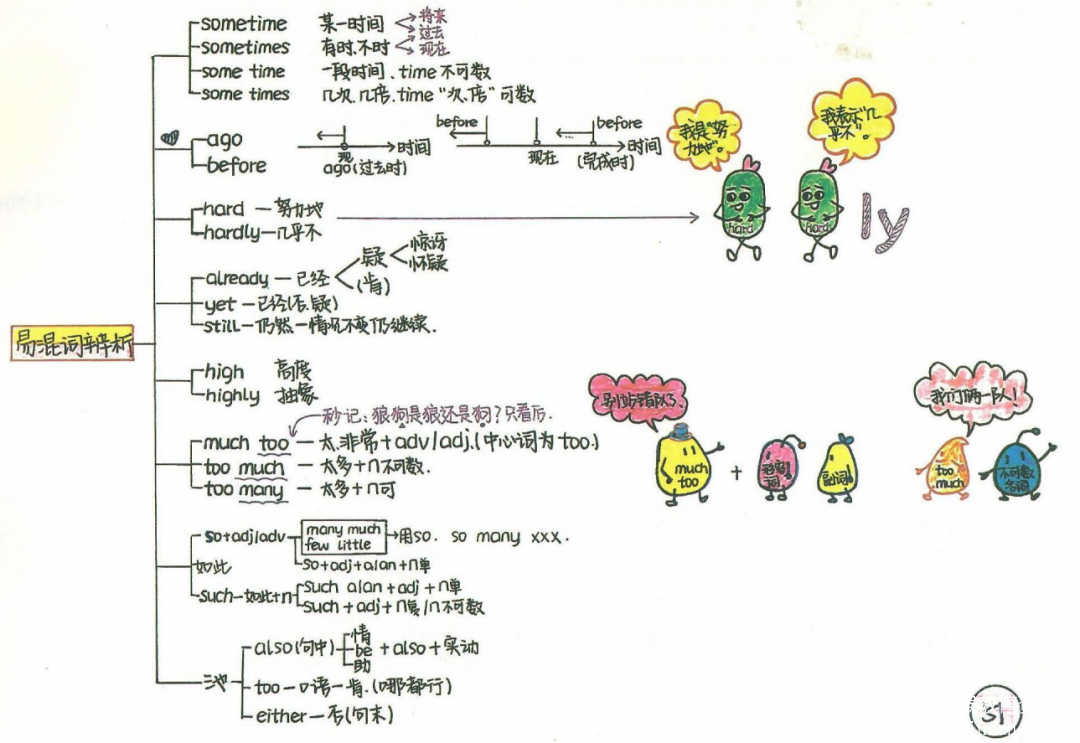 易混词辨析
sometime 某一时间 将来
过去
sometimes 有时.不时 现在
some time 一段时间、time不可数
some times 几次.几倍.time“次、倍”可数
ago
before
现
时间
ago(过去时)
before
before
现在
(完成时)
时间
我是“努力地”。
我表示“几乎不”。
hard
hard
ly
hard — 努力地
hardly — 几乎不
already — 已经
疑
惊讶
怀疑
(肯)
yet — 已经(否.疑)
still — 仍然 — 情况不变仍继续.
high 高度
highly 抽象
秒记:狼狗是狼还是狗?只看后.
much too — 太.非常+adv/adj.(中心词为too.)
too much — 太多+n不可数.
too many — 太多+n可
别站错队了.
much too
+
形容词
副词
我们俩一队!
too much
不可数名词
如此
so+adj/adv
many much
few little
用so. so many xxx.
so+adj+a/an+n单
such—如此+n
such a/an+adj+n单
such+adj+n复/n不可数
也
also(句中)
情
be
助
+also+实动
too—口语—肯.(哪都行)
either—否(句末)
31